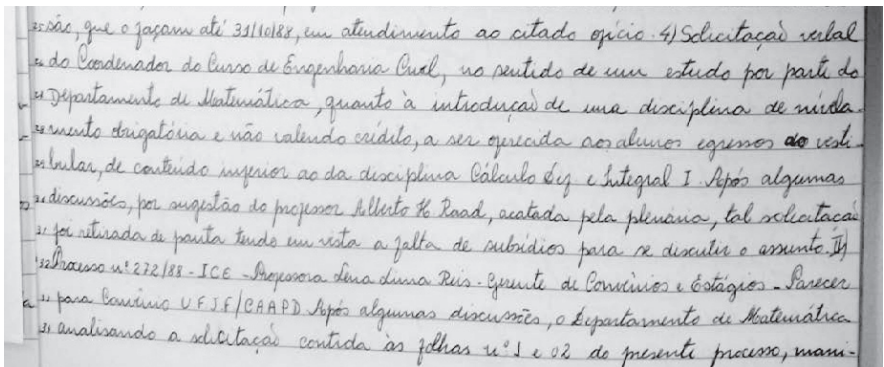 25 são, que o façam até 31/10/88, em atendimento ao citado ofício. 4) Solicitação verbal
26 do Coordenador do Curso de Engenharia Civil, no sentido de um estudo por parte do
27 Departamento de Matemática, quanto à introdução de uma disciplina de nivela-
28 mento obrigatória e não valendo crédito, a ser oferecida aos alunos egressos do vesti-
29 bular, de conteúdo inferior ao da disciplina Cálculo Dif e Integral I. Após algumas
30 discussões, por sugestão do professor Alberto H Raad, acatada pela plenária, tal solicitação
31 foi retirada de pauta tendo em vista a falta de subsídios para se discutir o assunto.
32 Processo nº 272/88 - ICE - Professora Lena Reis - Gerente de Convênios e Estágios - Parecer
33 para Convênio UFJF/CAAPD. Após algumas discussões, o Departamento de Matemática
34 analisando a solicitação contida às folhas nº 1 e 02 do presente processo, mani-